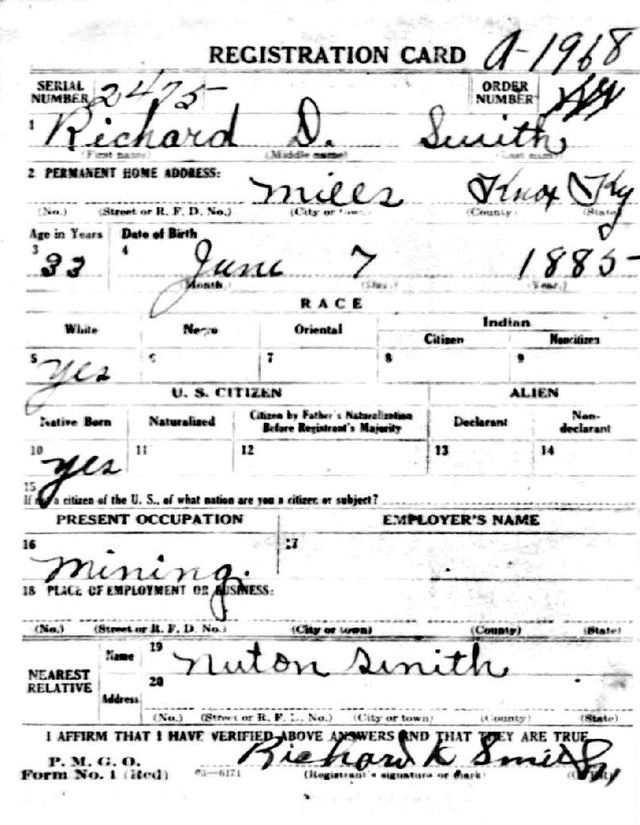 REGISTRATION CARD A-1968
SERIAL NUMBER 2475 ORDER NUMBER
1 Richard D. Smith
(First name) (Middle name) (Last name)
2 PERMANENT HOME ADDRESS: Mills Knox Ky
(No.) (Street or R. F. D. No.) (City or town) (County) (State)
Age in Years Date of Birth
3 33 4 June 7 1885
(Month.) (Day.) (Year.)
RACE
White Negro Oriental Indian
Citizen Noncitizen
5 yes 6 7 8 9
U. S. CITIZEN ALIEN
Native Born Naturalized Citizen by Father's Naturalization Before Registrant's Majority Declarant Non-declarant
10 yes 11 12 13 14
15
If not a citizen of the U. S., of what nation are you a citizen or subject?
PRESENT OCCUPATION EMPLOYER'S NAME
16 Mining. 17
18 PLACE OF EMPLOYMENT OR BUSINESS:
(No.) (Street or R. F. D. No.) (City or town) (County) (State)
NEAREST RELATIVE Name 19 Nuton Smith
Address 20
(No.) (Street or R. F. D. No.) (City or town) (County) (State)
I AFFIRM THAT I HAVE VERIFIED ABOVE ANSWERS AND THAT THEY ARE TRUE
P. M. G. O.
Form No. 1 (Red) 03-6171 Richard K Smith
(Registrant's signature or mark)